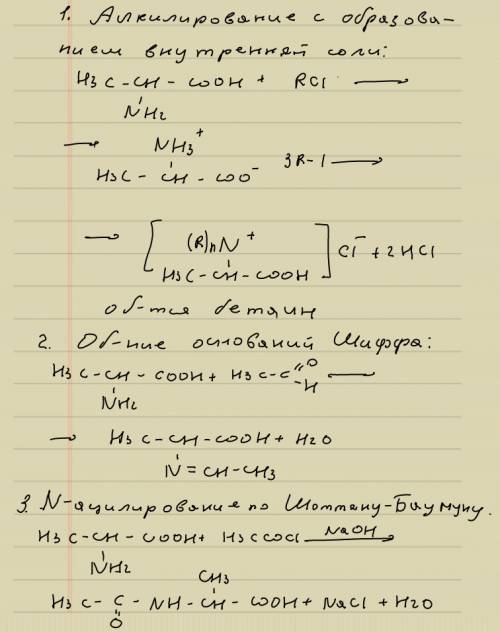 1. Алкилирование с образова-
нием внутренней соли:
H3C-CH-COOH + RCl →
NH2
→ NH3+
H3C-CH-COO⁻ 3R-I →
→ [(R)nN+
H3C-CH-COOH] Cl⁻ + 2HCl
об-тся бетаин
2. Об-ние оснований Шиффа:
H3C-CH-COOH + H3C-C=O-H →
NH2
→ H3C-CH-COOH + H2O
N=CH-CH3
3. N-ацилирование по Шоттану-Бауману.
H3C-CH-COOH + H3CCOCl NaOH →
NH2
CH3
H3C-C-NH-CH-COOH + NaCl + H2O
O